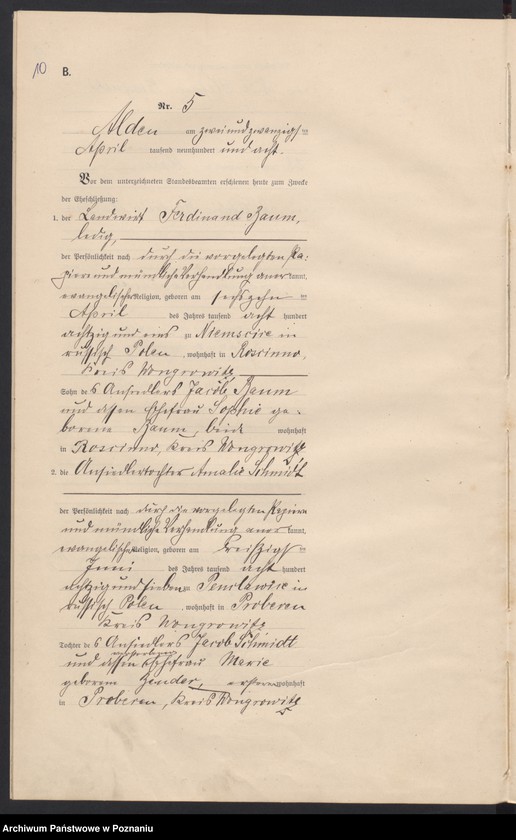 10 B.
Nr. 5
Alden am zweiundzwanzigsten
April tausend neunhundert und acht.
Vor dem unterzeichneten Standesbeamten erschienen heute zum Zwecke
der Eheschließung:
1. der Landwirt Ferdinand Baum,
ledig,
der Persönlichkeit nach durch die vorgelegten Pa-
piere und mündliche Verhandlung anerkannt,
evangelischer Religion, geboren am sechszehnten
April des Jahres tausend acht hundert
achtzig und eins zu in
russisch Polen, wohnhaft in Roscinno,
Kreis Wongrowitz
Sohn des Ansiedlers Jacob Baum
und dessen Ehefrau Sophie ge-
borene Baum, beide wohnhaft
in Roscinno, Kreis Wongrowitz
2. die Ansiedlertochter Amalie Schmidt
der Persönlichkeit nach durch die vorgelegten Papiere
und mündliche Verhandlung anerkannt,
evangelischer Religion, geboren am
Juni des Jahres tausend acht hundert
achtzig und sieben zu in
russisch Polen, wohnhaft in Proberen
Kreis Wongrowitz
Tochter des Ansiedlers Jacob Schmidt
und dessen Ehefrau Marie
geborene Zender, wohnhaft
in Proberen, Kreis Wongrowitz
Archiwum Państwowe w Poznaniu